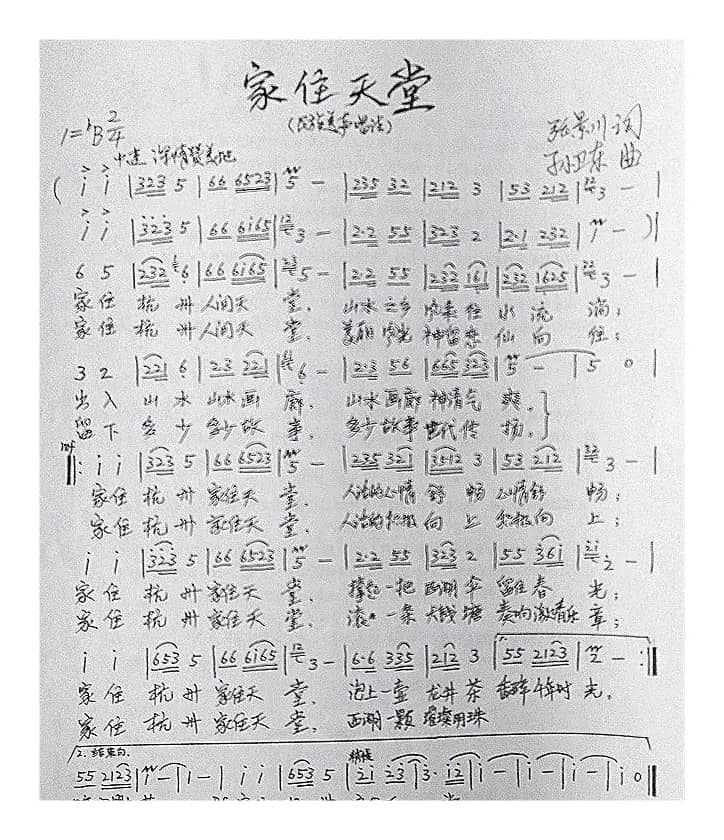 家住天堂
(民族美声唱法)
1=♭B 2/4
张景川 词
中速 深情赞美地
孙卫东 曲
( i i | 323 5 | 66 6523 | 5 – | 235 32 | 212 3 | 53 212 | 3 – |
i i | 323 5 | 66 6i65 | 3 – | 2·2 55 | 323 2 | 2·1 232 | 1 – ) |
6 5 | 232 6 | 66 6i65 | 5 – | 2·2 55 | 232 161 | 232 1625 | 3 – |
家住 杭州 人间天 堂, 山水之乡 住 水流 淌;
家住 杭州 人间天 堂, 美丽 神留恋 仙向 往;
3 2 | 221 6 | 2·3 221 | 6 – | 2·3 56 | 665 323 | 5 – | 5 0 |
出入 山水 山水画 廊, 山水画廊 神清气 爽。
留下 多少 多少故 事, 多少故事 世代传 扬。
mf
‖: i i | 323 5 | 66 6523 | 5 – | 235 321 | 3512 3 | 53 212 | 3 – |
家住 杭州 家住天 堂, 人活的心情 舒畅 心情舒 畅;
家住 杭州 家住天 堂, 人活的 向上 向 上;
i i | 323 5 | 66 6523 | 5 – | 2·2 55 | 323 2 | 55 36i | 2 – |
家住 杭州 家住天 堂, 撑起一把 西湖伞 留住春 光;
家住 杭州 家住天 堂, 滚 一条 大钱塘 奏响激情乐 章;
i i | 653 5 | 66 6i65 | 3 – | 6·6 335 | 212 3 | 55 2123 | 2 – :‖
家住 杭州 家住天 堂, 泡上一壶 龙井茶 香醉 时 光。
家住 杭州 家住天 堂, 西湖一颗 璀璨明珠
2. 结束句.
稍慢
55 2123 | 1 – | 1 – | i i | 653 5 | 21 23 | 3· i2 | i – | i – | i – | i 0 ‖